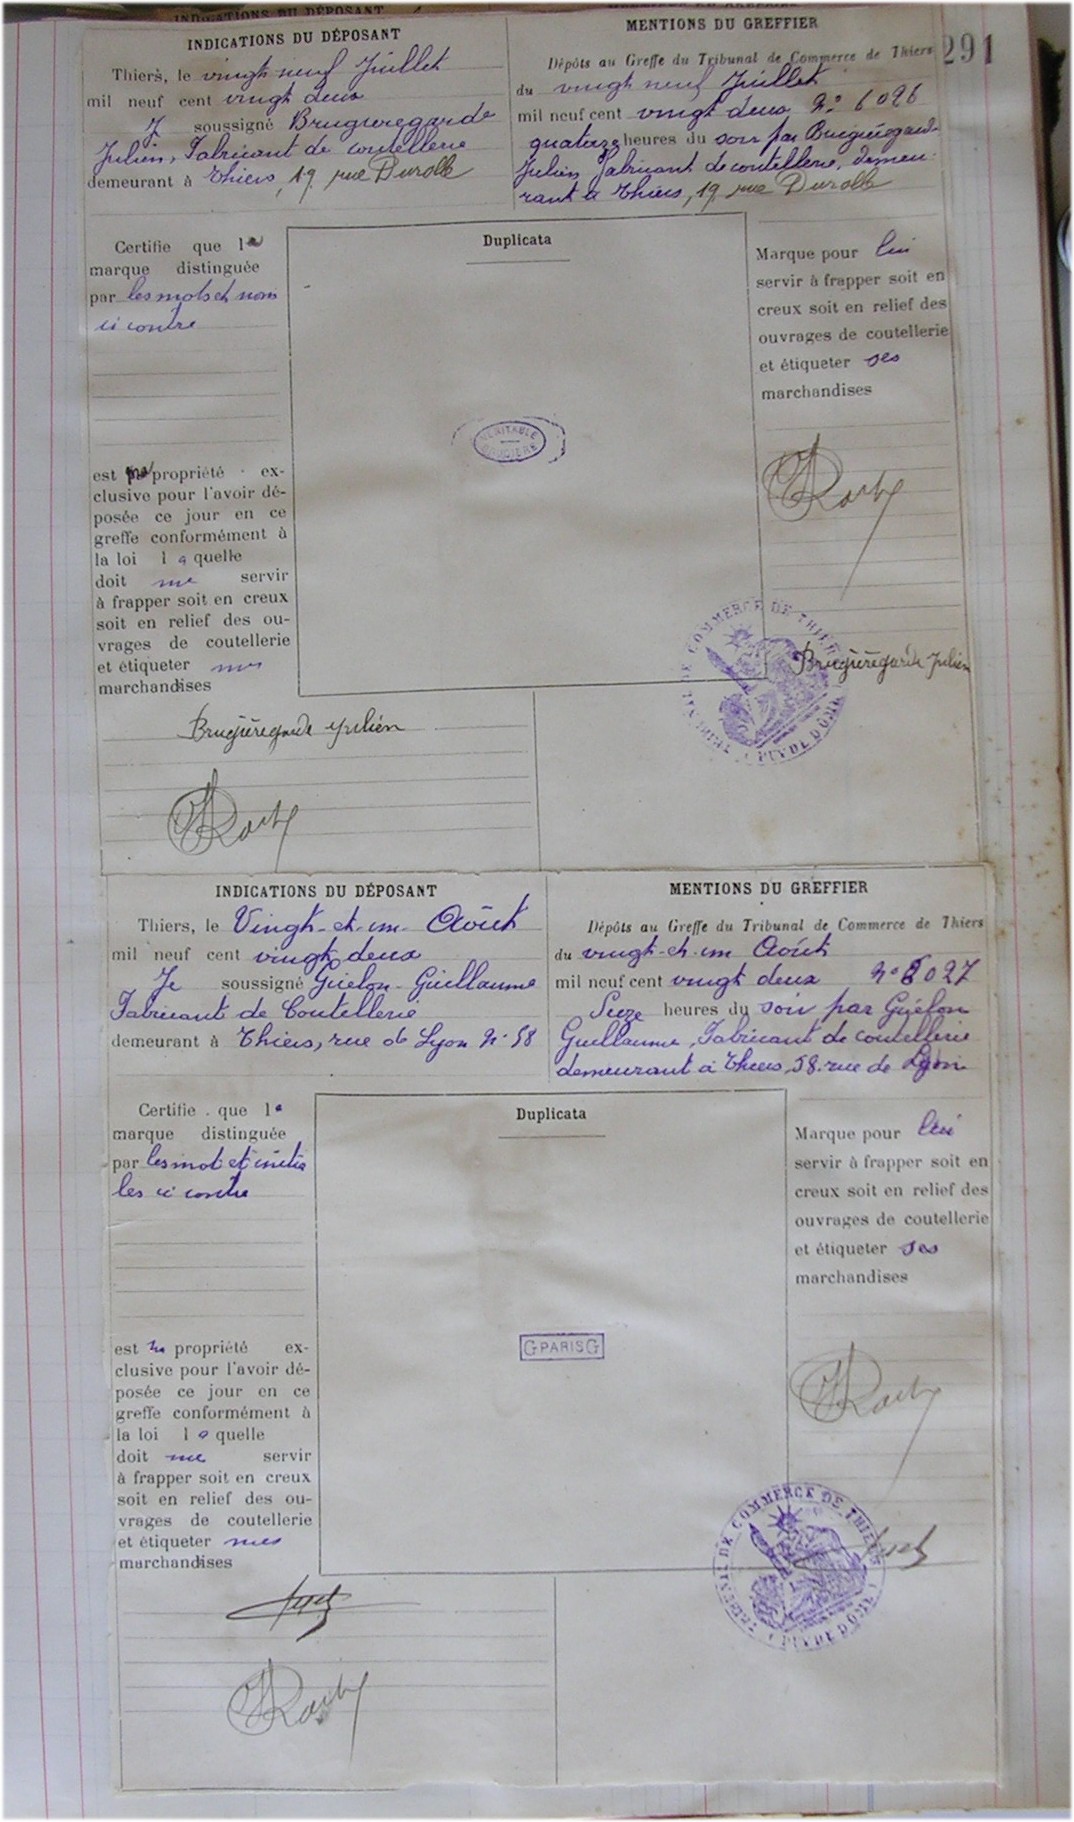 INDICATIONS DU DÉPOSANT
MENTIONS DU GREFFIER
291
INDICATIONS DU DÉPOSANT
Thiers, le vingt neuf Juillet
mil neuf cent vingt deux
J soussigné Bruguieregarde
Julien, Fabricant de coutellerie
demeurant à Thiers, 19, rue Durolle
MENTIONS DU GREFFIER
Dépôts au Greffe du Tribunal de Commerce de Thiers
du vingt neuf Juillet
mil neuf cent vingt deux No 6026
quatorze heures du soir par
Julien Fabricant de coutellerie, demeu-
rant à Thiers, 19, rue Durolle
Certifie que la
marque distinguée
par les mots et nom
ci contre
est ma propriété ex-
clusive pour l'avoir dé-
posée ce jour en ce
greffe conformément à
la loi laquelle
doit me servir
à frapper soit en creux
soit en relief des ou-
vrages de coutellerie
et étiqueter mes
marchandises
Duplicata
VÉRITABLE
Marque pour lui
servir à frapper soit en
creux soit en relief des
ouvrages de coutellerie
et étiqueter ses
marchandises
Brugièregarde Julien
TRIBUNAL DE COMMERCE DE THIERS
PUY DE DOME
Brugièregarde Julien
INDICATIONS DU DÉPOSANT
Thiers, le Vingt-et-un Août
mil neuf cent vingt deux
Je soussigné Guélon-Guillaume
Fabricant de Coutellerie
demeurant à Thiers, rue de Lyon No 58
MENTIONS DU GREFFIER
Dépôts au Greffe du Tribunal de Commerce de Thiers
du vingt-et-un Août
mil neuf cent vingt deux No 6027
Seize heures du soir par Guélon
Guillaume, Fabricant de coutellerie
demeurant à Thiers, 58. rue de Lyon
Certifie que la
marque distinguée
par les mot et initia
les ci contre
est ma propriété ex-
clusive pour l'avoir dé-
posée ce jour en ce
greffe conformément à
la loi laquelle
doit me servir
à frapper soit en creux
soit en relief des ou-
vrages de coutellerie
et étiqueter mes
marchandises
Duplicata
G PARIS G
Marque pour lui
servir à frapper soit en
creux soit en relief des
ouvrages de coutellerie
et étiqueter ses
marchandises
TRIBUNAL DE COMMERCE DE THIERS
PUY DE DOME